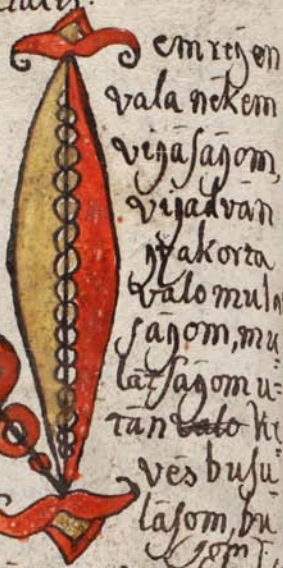 em régen
vala nékem
vigāsāgom,
vigadván
gyakorta
való mula
sāgom, mu
látsāgom u=
tān való Ke
vés busu
lāsom, bu